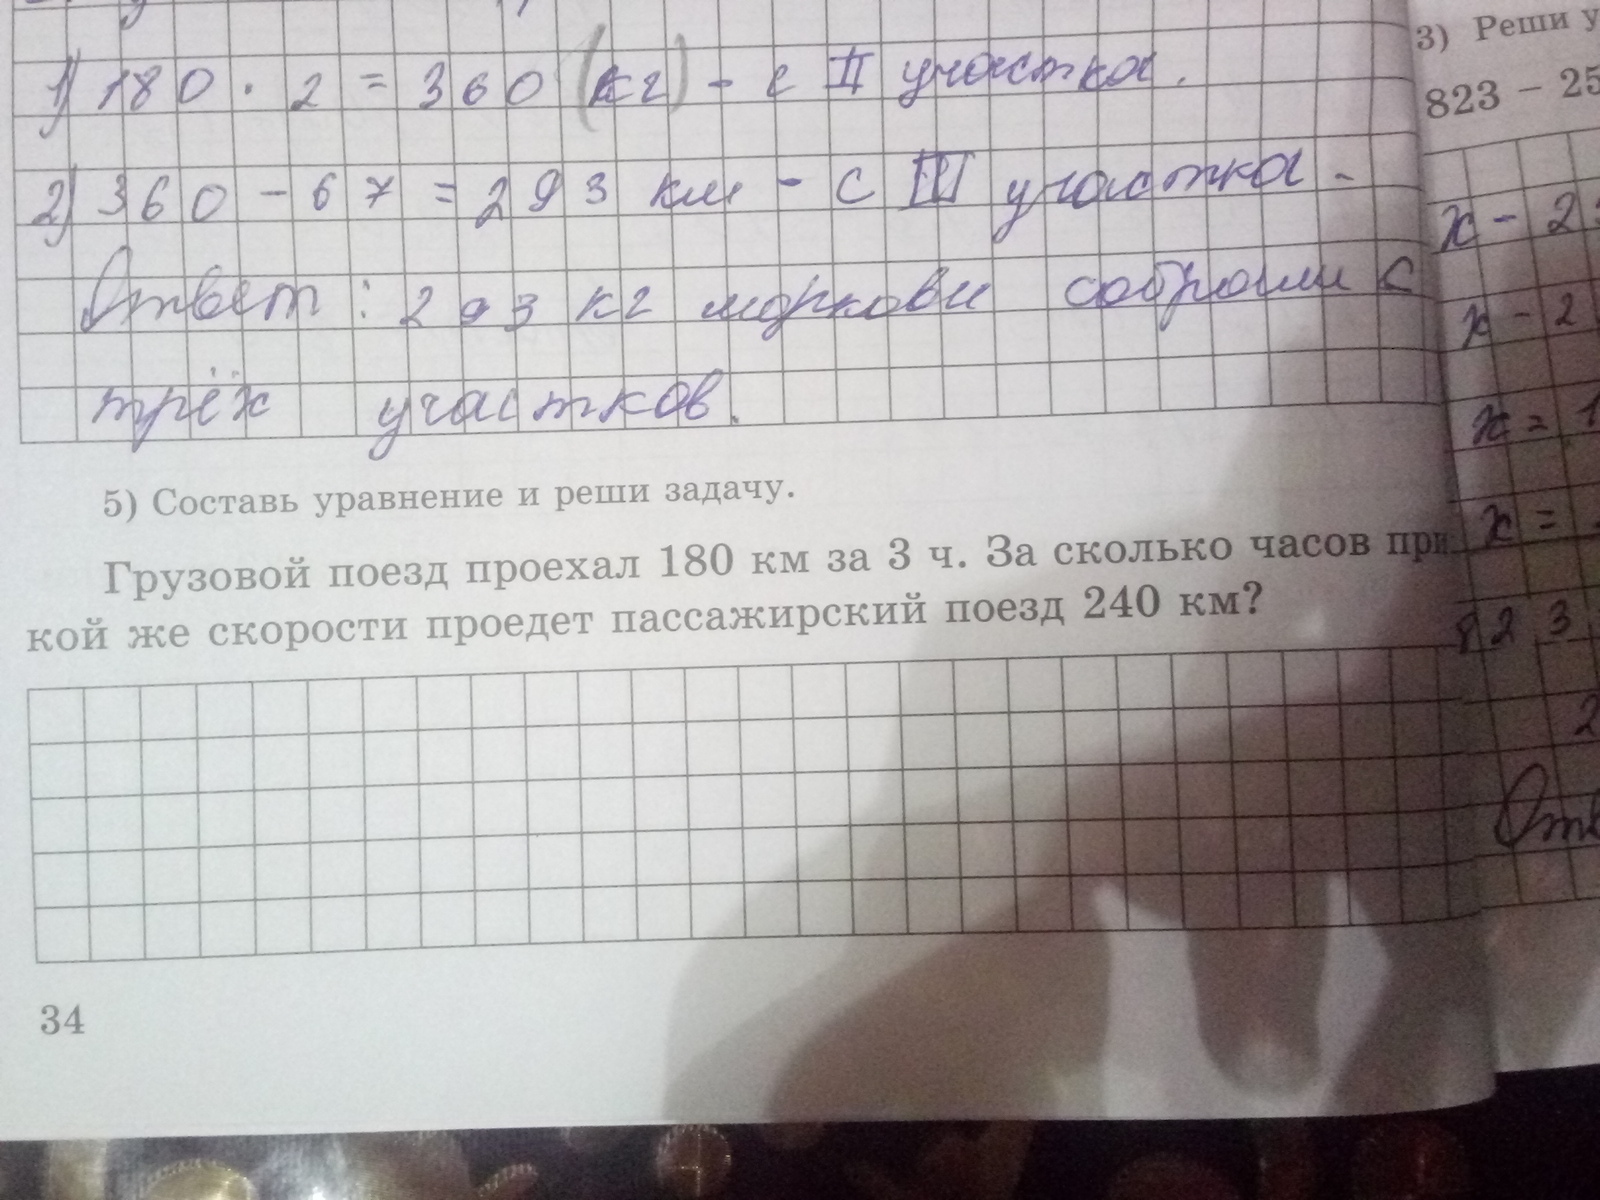 1) 180 · 2 = 360 (кг) - с II участка.
2) 360 - 67 = 293 км - с III участка -
Ответ: 293 кг моркови собрали с
трёх участков.
5) Составь уравнение и реши задачу.
Грузовой поезд проехал 180 км за 3 ч. За сколько часов при
кой же скорости проедет пассажирский поезд 240 км?
34
3) Реши у
823 - 25
х - 2
х - 2
х = 1
х =
823
2
Отв